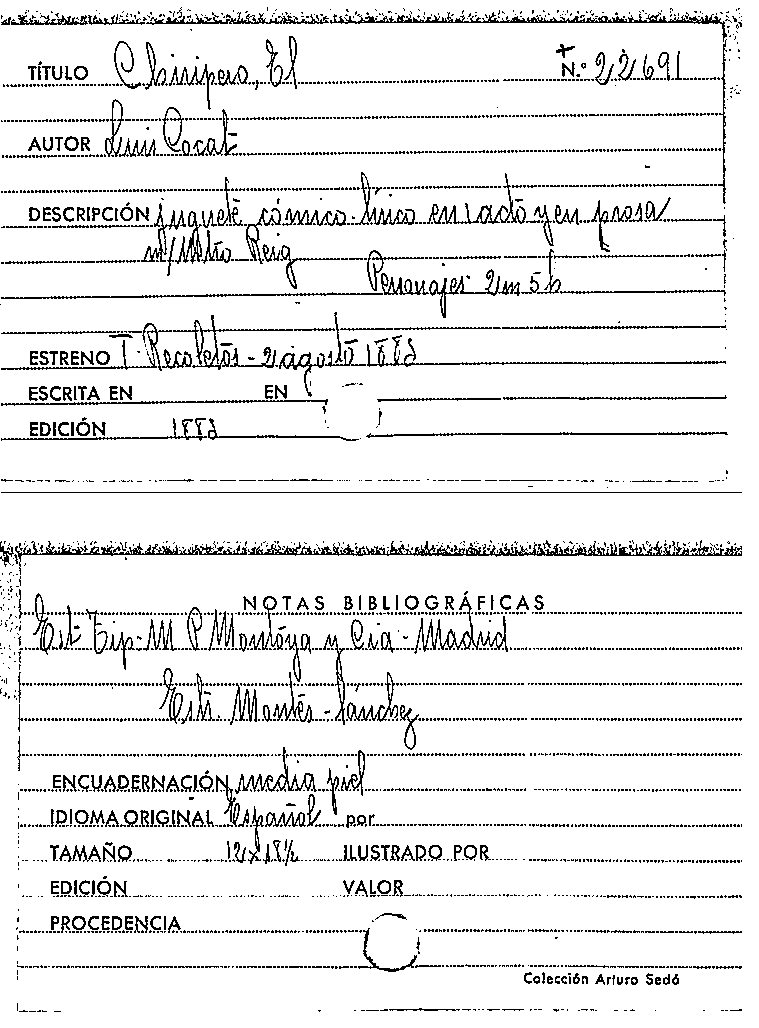 TÍTULO Chiripero, El
+
N.º 22691
AUTOR Luis Cocat
DESCRIPCIÓN juguete cómico-lírico en 1 acto y en prosa
m/ Mtro Reig
Personajes 2m 5h
ESTRENO T. Recoletos - 2 agosto 1883
ESCRITA EN EN
EDICIÓN 1883
NOTAS BIBLIOGRÁFICAS
Est. Tip. M P Montoya y Cia - Madrid
Estr. Montes - Sánchez
ENCUADERNACIÓN media piel
IDIOMA ORIGINAL Español por
TAMAÑO 12x18½ ILUSTRADO POR
EDICIÓN VALOR
PROCEDENCIA
Colección Arturo Sedó